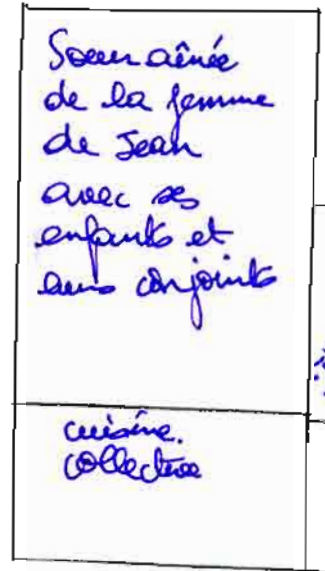 Soeur aînée
de la femme
de Jean
avec ses
enfants et
leurs conjoints
cuisine.
collective